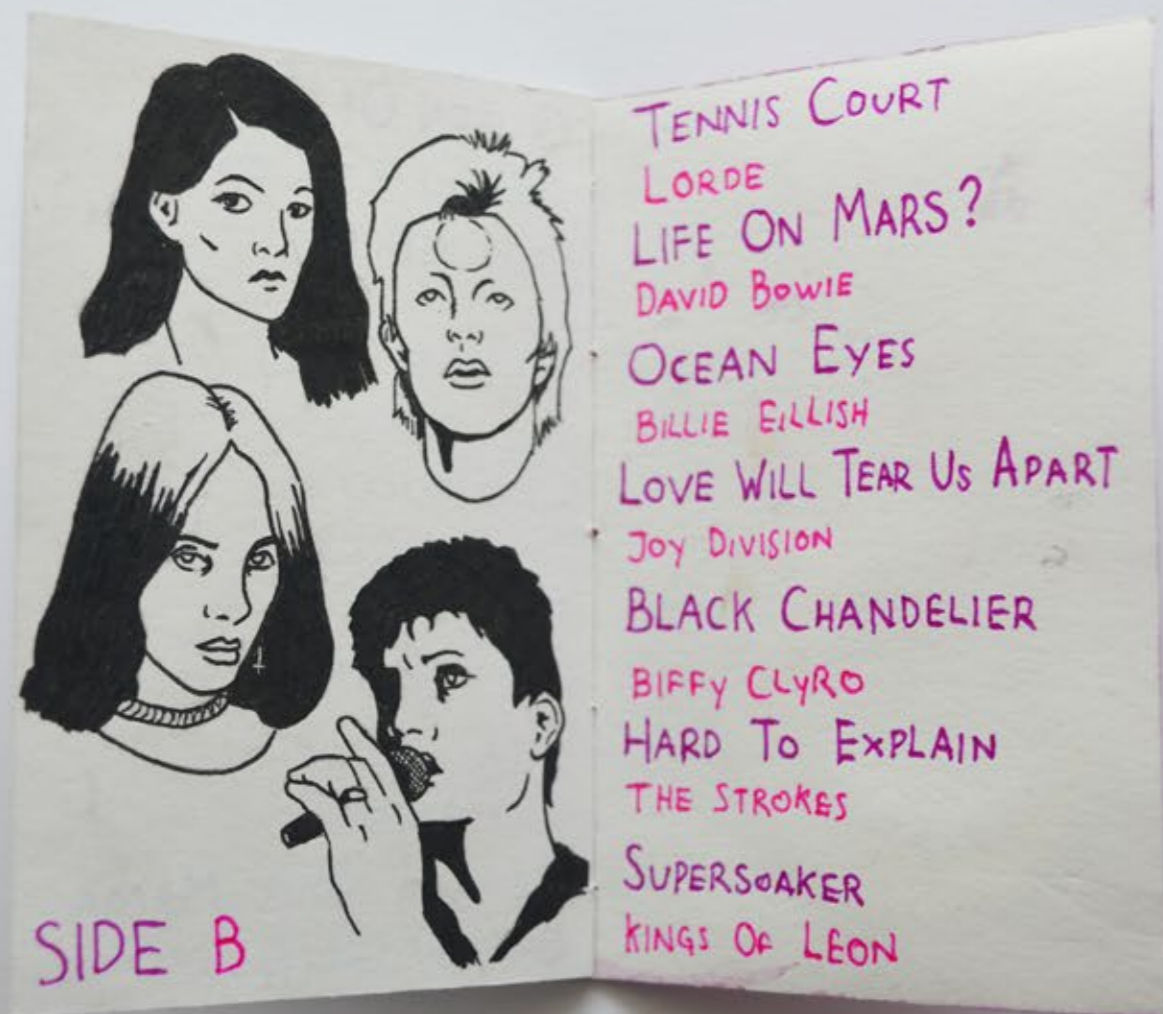 SIDE B
TENNIS COURT
LORDE
LIFE ON MARS?
DAVID BOWIE
OCEAN EYES
BILLIE EILLISH
LOVE WILL TEAR US APART
JOY DIVISION
BLACK CHANDELIER
BIFFY CLYRO
HARD TO EXPLAIN
THE STROKES
SUPERSOAKER
KINGS OF LEON